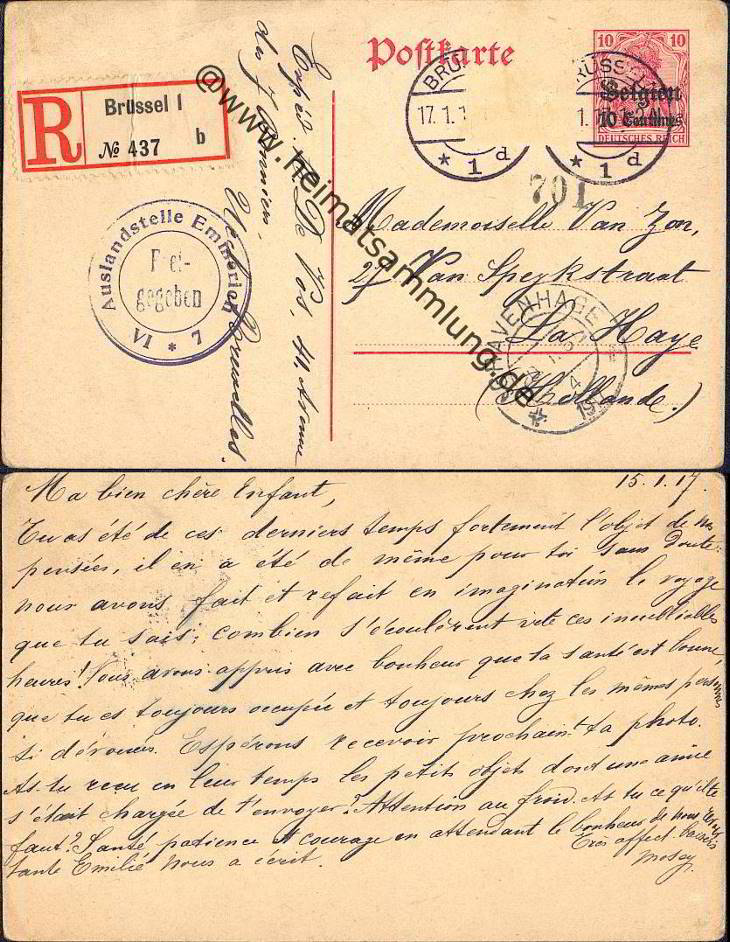 Postkarte
10 10
Belgien
10 Centimes
DEUTSCHES REICH
R
Brüssel 1
№ 437 b
BRÜ
17.1.1
* 1 d
RÜSSE
* 1 d
701
Auslandstelle Emmerich
Frei-
gegeben
VI * 7
Expéd. De Vos, 44 Avenue
des
Uccle Bruxelles.
Mademoiselle Van Zon,
27 Van Speykstraat
La Haye
(Hollande.)
'S GRAVENHAGE
@www.heimatsammlung.de
15.1.17.
Ma bien chère Enfant,
Tu as été de ces derniers temps fortement l'objet de nos
pensées, il en a été de même pour toi sans doute.
nous avons fait et refait en imagination le voyage
que tu sais; combien s'écoulèrent vite ces inoubliables
heures! Nous avons appris avec bonheur que ta santé est bonne,
que tu es toujours occupée et toujours chez les mêmes personnes
si dévouées. Espérons recevoir prochain.t ta photo.
As-tu reçu en leur temps les petits objets dont une amie
s'était chargée de t'envoyer? Attention au froid. As tu ce qu'il te
faut? Santé, patience et courage en attendant le bonheur de nous revoir
Très affect. baisers
tante Emilie nous a écrit.